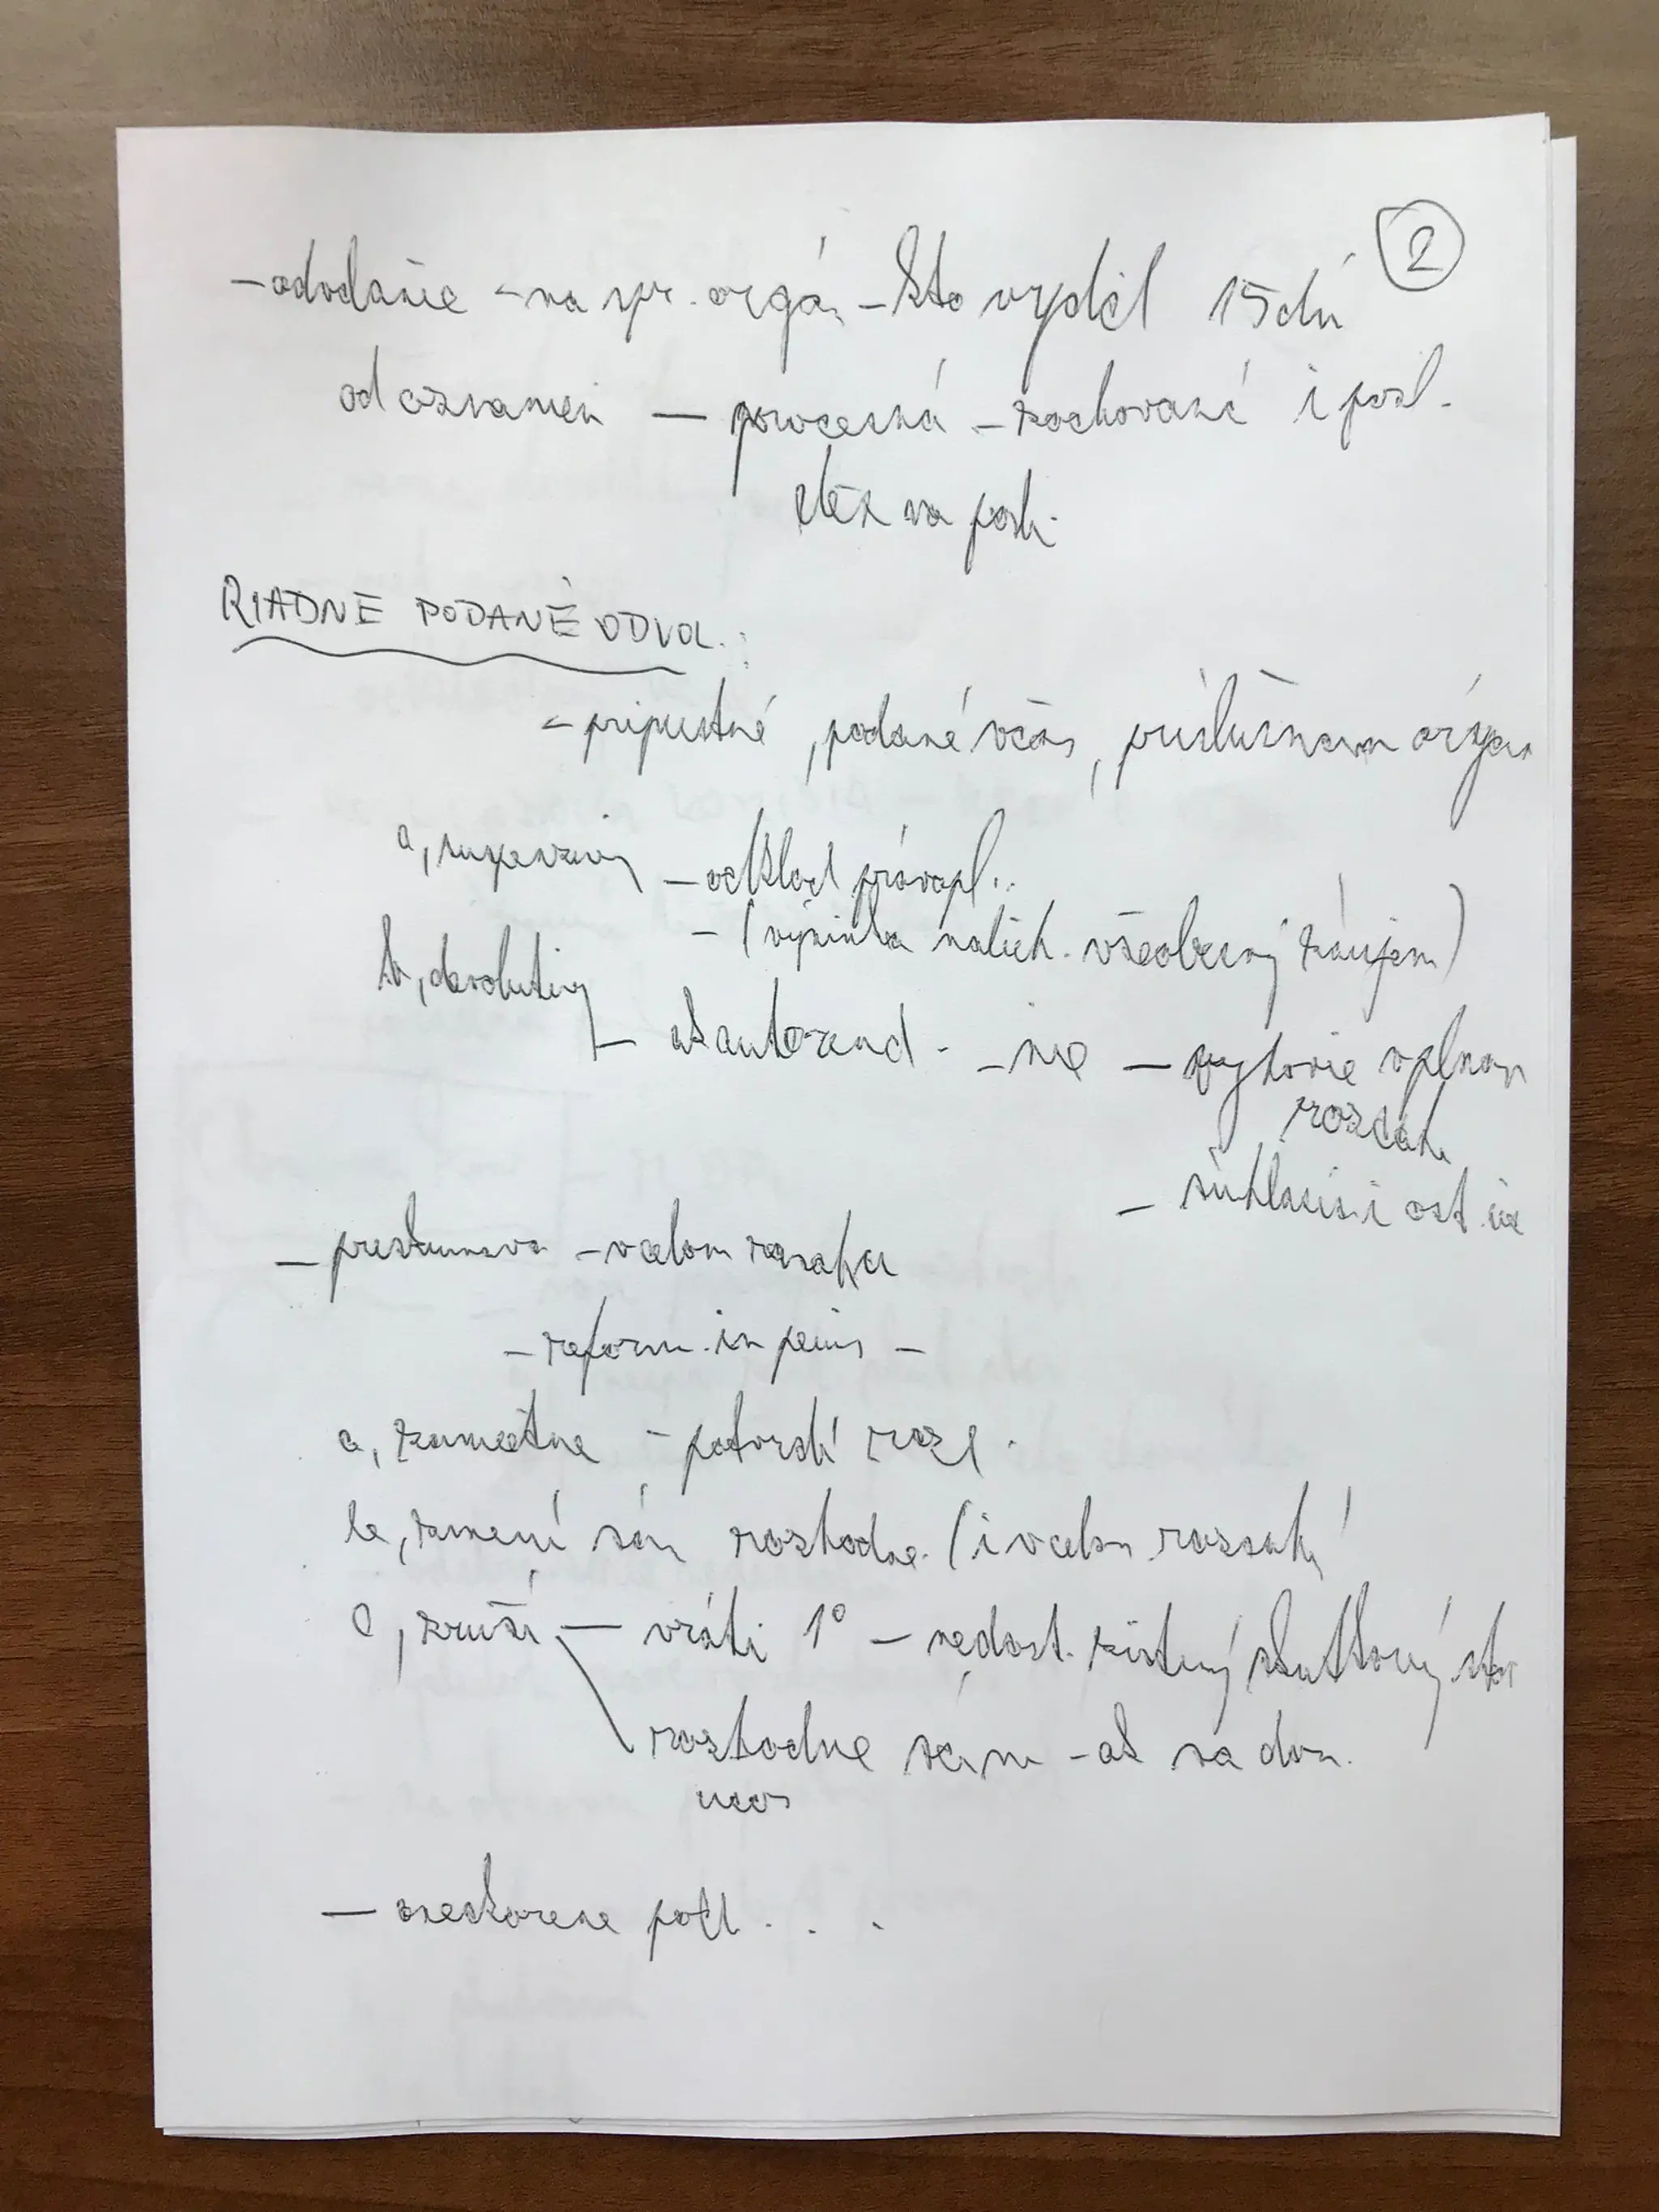 2
- odvolanie - na spr. orgán - kto vydal 15 dní
od oznamen - procesná - zachované i posl.
deň na pošt.
RIADNE PODANÉ ODVOL.:
- prípustné, podané včas, príslušnému orgán
a, suspenzívny - odklad právopl..
- (výnimka nalieh. všeobecný záujem)
b, devolutívny
ak autoremed. - nie - vyhovie v plnom
rozsahu
- súhlasia i ost. úč
- preskúmava - v celom rozsahu
- reform. in peius -
a, zamietne - potvrdí rozh.
b, zmení sám rozhodne. (i v celom rozsahu
c, zruší - vráti 1° - nedost. zistený skutkový stav
rozhodne sám - ak sa dom.
-